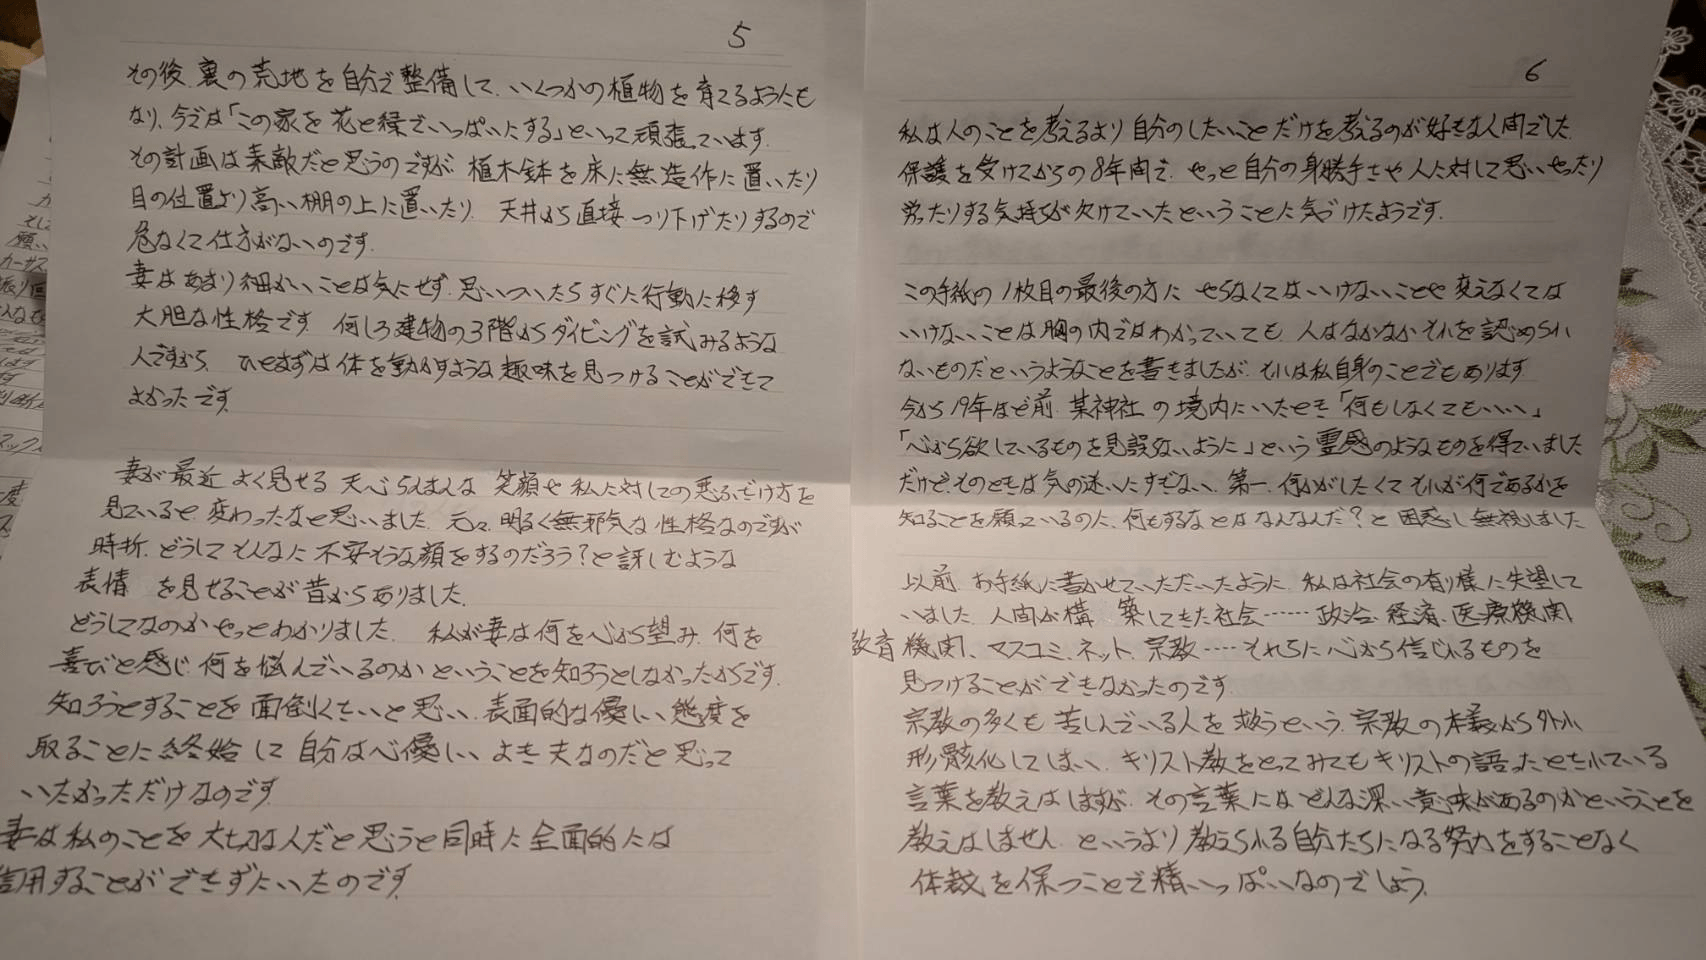 5
その後、裏の荒地を自分で整備して、いくつかの植物を育てるようにも
なり、今では「この家を花と緑でいっぱいにする」といって頑張っています。
その計画は素敵だと思うのですが、植木鉢を床に無造作に置いたり
目の位置より高い棚の上に置いたり、天井から直接つり下げたりするので
危なくて仕方がないのです。
妻はあまり細かいことは気にせず、思いついたらすぐに行動に移す
大胆な性格です 何しろ建物の3階からダイビングを試みるような
人ですから、ひとまずは体を動かすような趣味を見つけることができて
よかったです。
妻が最近よく見せる天心らんまんな笑顔や私に対しての悪ふざけ方を
見ていると、変わったなと思いました。元々、明るく無邪気な性格なのですが
時折、どうしてそんなに不安そうな顔をするのだろう?と訝しむような
表情 を見せることが昔からありました。
どうしてなのかやっとわかりました。 私が妻は何を心から望み、何を
喜びと感じ、何を悩んでいるのかということを知ろうとしなかったからです。
知ろうとすることを面倒くさいと思い、表面的な優しい態度を
取ることに終始して 自分は心優しい、よき夫なのだと思って
いたかっただけなのです。
妻は私のことを大切な人だと思うと同時に全面的には
信用することができずにいたのです。
6
私は人のことを考えるより自分のしたいことだけを考えるのが好きな人間でした。
保護を受けてからの8年間で、やっと自分の身勝手さや人に対して思いやったり
労ったりする気持ちが欠けていたということに気づけたようです。
この手紙の1枚目の最後の方に やらなくてはいけないことや変えなくては
いけないことは胸の内ではわかっていても、人はなかなかそれを認められ
ないものだというようなことを書きましたが、それは私自身のことでもあります
今から19年ほど前、某神社の境内にいたとき「何もしなくてもいい」
「心から欲しているものを見誤らないように」という霊感のようなものを得ていました
だけど、そのときは気の迷いにすぎない、第一、何かがしたくてそれが何であるかを
知ることを願っているのに、何もするなとはなんなんだ?と困惑し無視しました
以前、お手紙に書かせていただいたように、私は社会の有り様に失望して
いました。人間が構 築してきた社会……政治、経済、医療機関、
教育機関、マスコミ、ネット、宗教‥‥それらに心から信じれるものを
見つけることができなかったのです。
宗教の多くも苦しんでいる人を救うという、宗教の本義から外れ
形骸化してしまい、キリスト教をとってみてもキリストの語ったとされている
言葉を教えはしますが、その言葉にはどんな深い意味があるのかということを
教えはしません。というより教えられる自分たちになる努力をすることなく
体裁を保つことで精いっぱいなのでしょう。